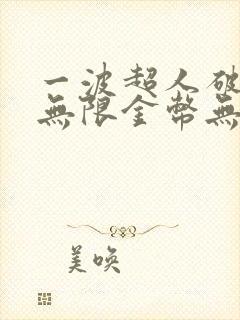 一波超人破
無限金幣無
美喚